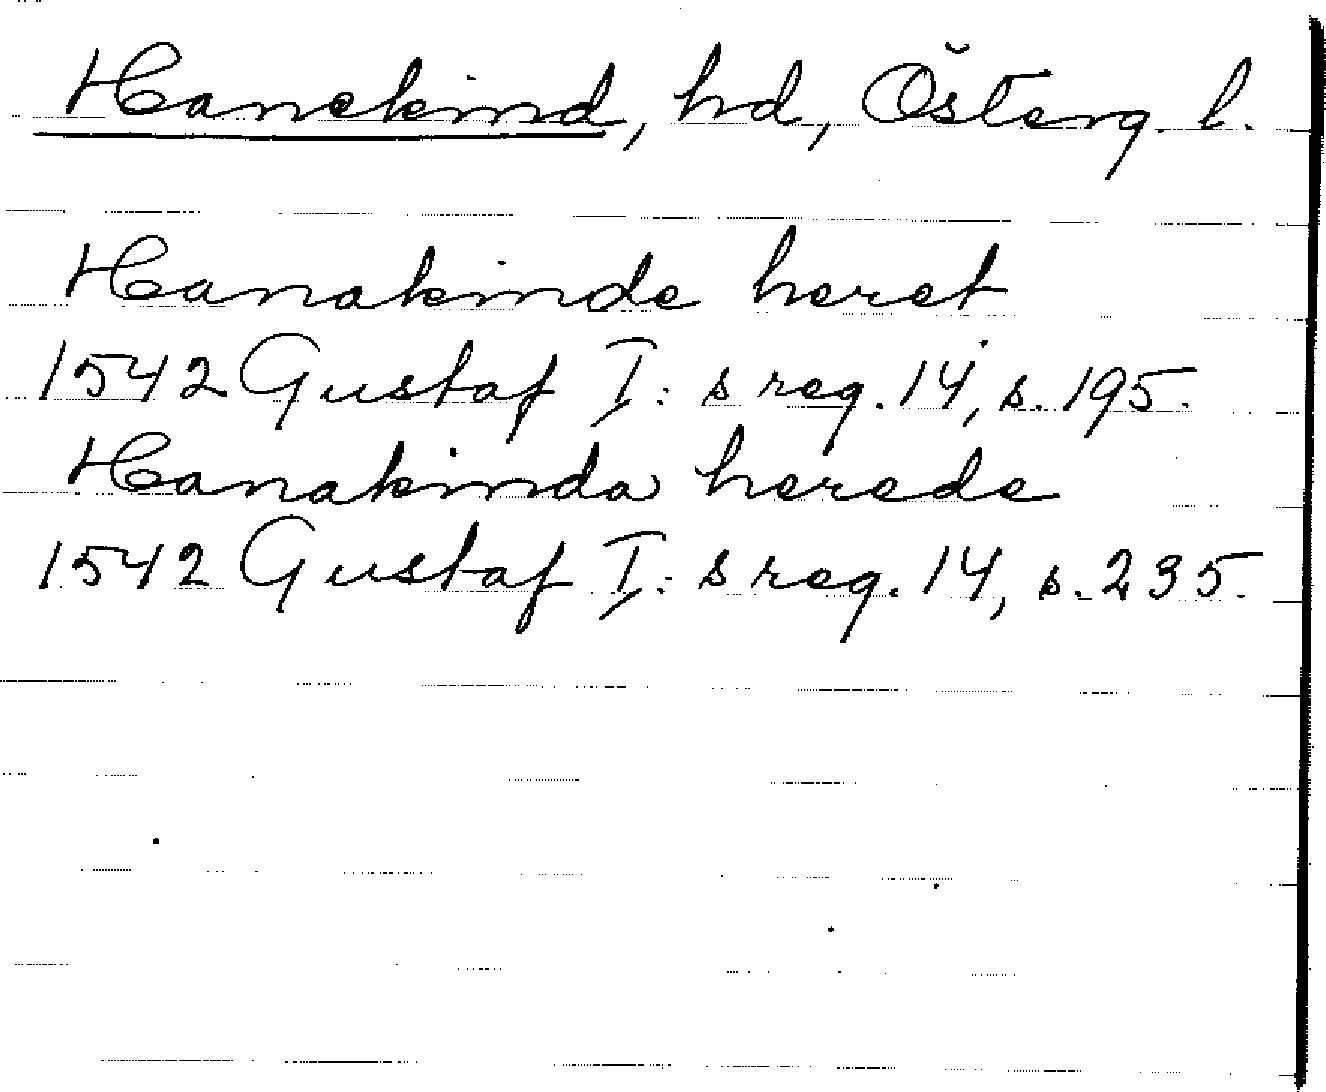 Hanekind, hd, Österg. l.
Hanakinde heret
1542 Gustaf I:s reg. 14, s. 195.
Hanakinda herede
1542 Gustaf I:s reg. 14, s. 235.